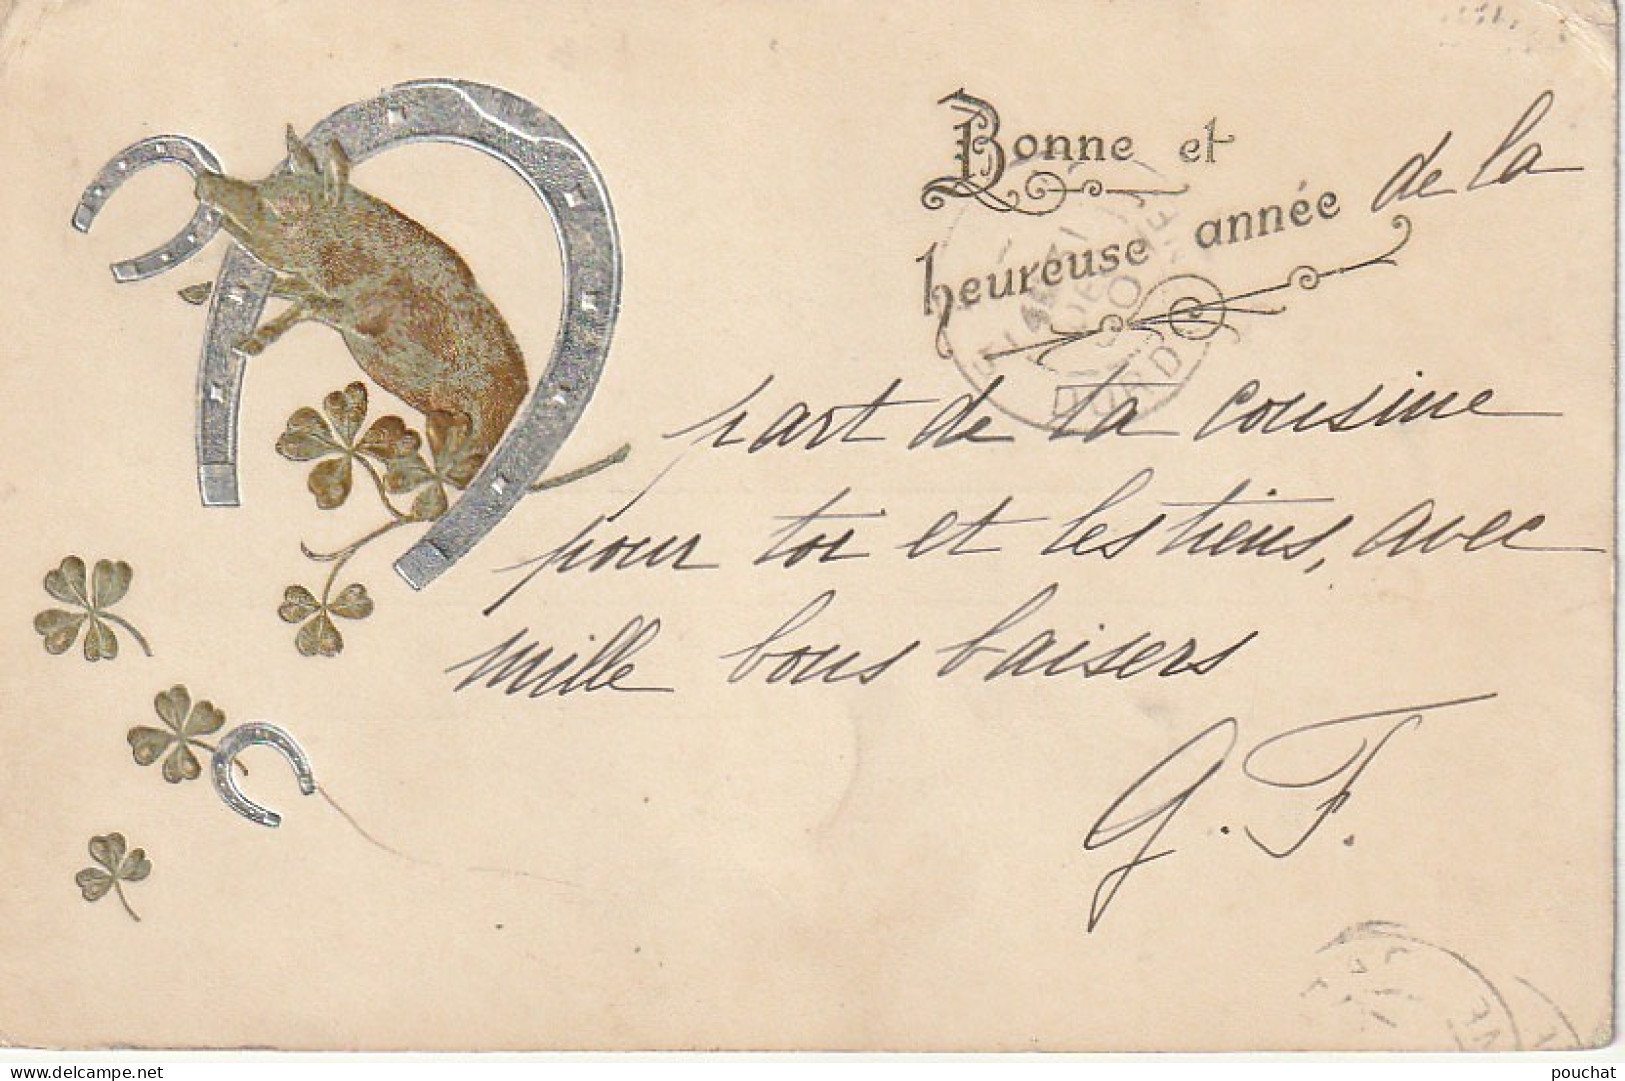 Bonne et
heureuse année de la
part de la cousine
pour toi et les tiens, avec
mille bons baisers
G. F.
delcampe.net
pouchat